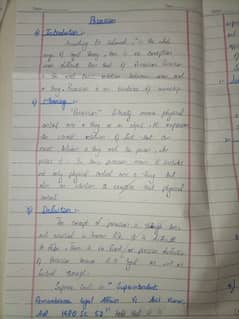 Possession
1) Introduction :-
According to Salmond, "in the whole
range of legal theory, there is no conception
more difficult than that of Possession. Possession
is the most basic relation between man and
a thing. Possession is an evidence of ownership.
2) Meaning :-
"Possession" literary means physical
control over a thing or an object. It expresses
the closest relation of fact that can
exist between a thing and the person, who
possess it. In law, possession means it includes
not only physical control over a thing but
also an intention to exercise that physical
control.
3) Definition :-
The concept of possession is though basic
and essential in human life, it is difficult
to define. There is no fixed or precise definition
of Possession because it is legal as well as
factual concept.
Supreme Court in "Superintendent
Remembrancer Legal Affairs Vs Anil Kumar,
AIR 1980 SC 52" held that it is